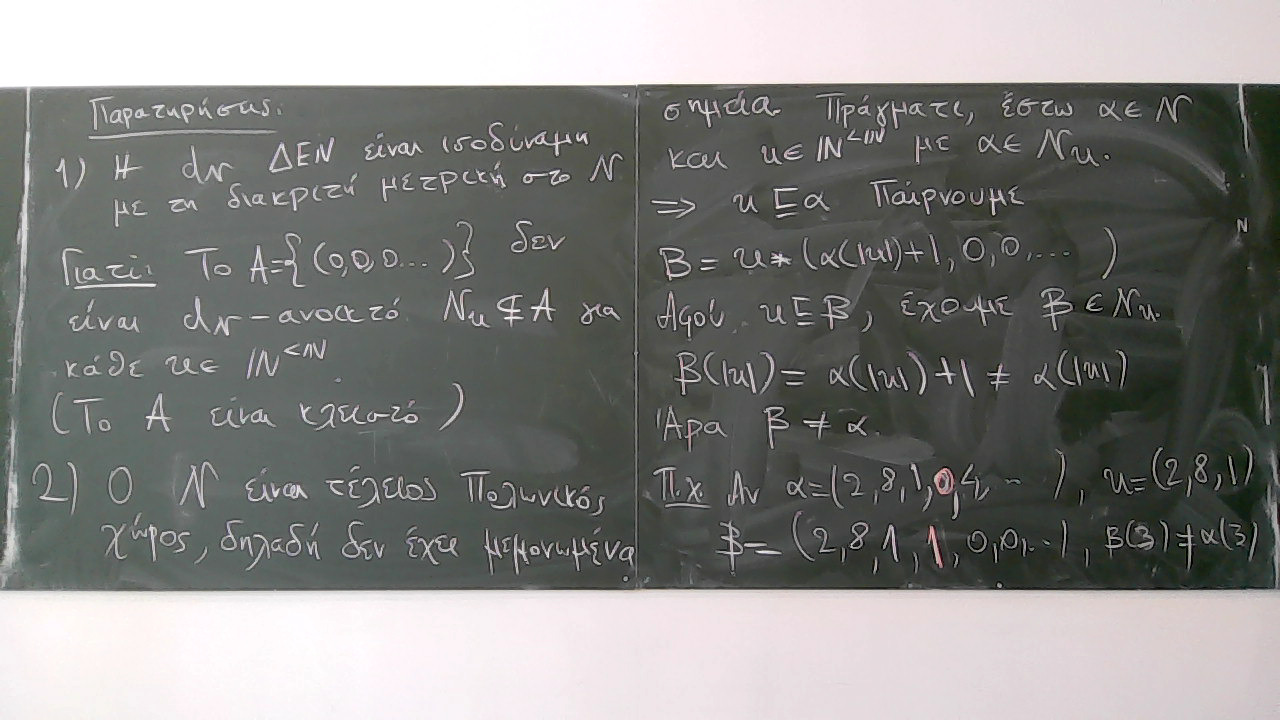 Παρατηρήσεις.
1) Η d𝒩 ΔΕΝ είναι ισοδύναμη
με τη διακριτή μετρική στο 𝒩
Γιατί: Το Α={(0,0,0...)} δεν
είναι d𝒩-ανοικτό. 𝒩u ⊈ A για
κάθε u∈ ℕ^{<ℕ}
(Το Α είναι κλειστό)
2) Ο 𝒩 είναι τέλειος Πολωνικός
χώρος, δηλαδή δεν έχει μεμονωμένα
σημεία. Πράγματι, έστω α∈𝒩
και u∈ℕ^{<ℕ} με α∈𝒩u.
⇒ u⊑α Παίρνουμε
β= u*(α(|u|)+1,0,0,...)
Αφού u⊑β, έχουμε β∈𝒩u.
β(|u|)= α(|u|)+1 ≠ α(|u|)
Άρα β≠α.
Π.χ. Αν α=(2,8,1,0,4,...), u=(2,8,1)
β=(2,8,1,1,0,0,...), β(3)≠α(3)
Ν